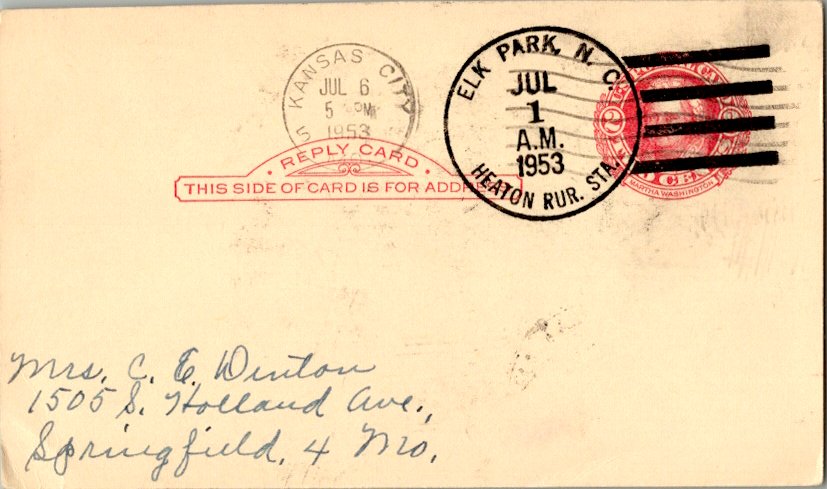 KANSAS CITY
JUL 6
5 PM
1953
ELK PARK, N. C.
JUL
1
A.M.
1953
HEATON RUR. STA.
2
MARTHA WASHINGTON
REPLY CARD
THIS SIDE OF CARD IS FOR
Mrs. C. E. Winton
1505 S. Holland Ave.,
Springfield, 4 Mo.